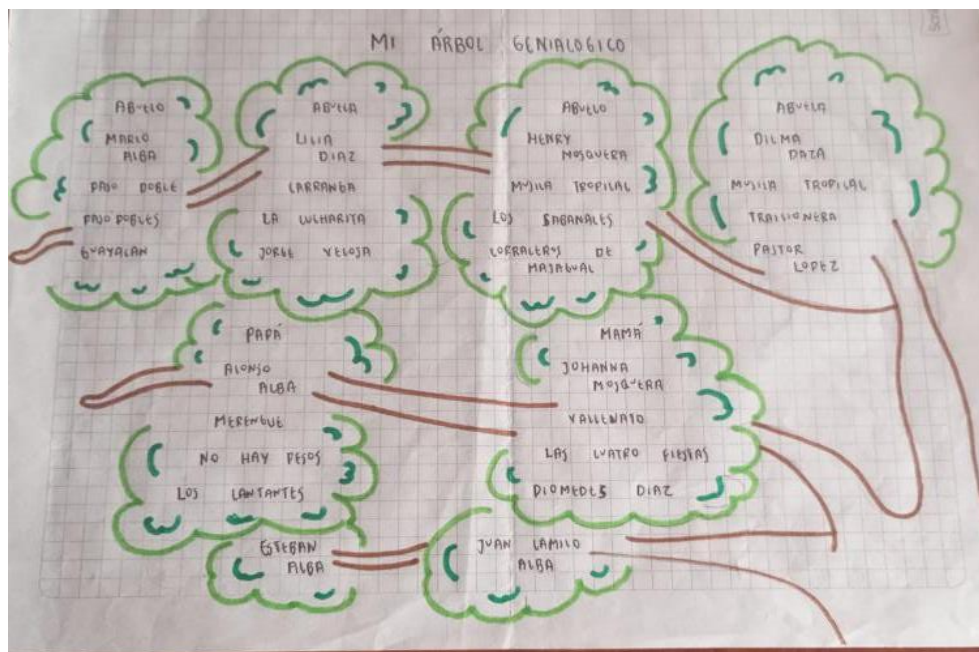 MI ÁRBOL GENIALOGICO
ABUELO
MARIO
ALBA
PASO DOBLE
PASO DOBLES
GUAYACAN
ABUELA
LILIA
DIAZ
CARRANGA
LA CUCHARITA
JORGE VELOSA
ABUELO
HENRY
MOSQUERA
MUSICA TROPICAL
LOS SABANALES
CORRALEROS DE
MAJAGUAL
ABUELA
DILMA
DAZA
MUSICA TROPICAL
TRAISIONERA
PASTOR
LOPEZ
PAPÁ
ALONSO
ALBA
MERENGUE
NO HAY PESOS
LOS CANTANTES
MAMÁ
JOHANNA
MOSQUERA
VALLENATO
LAS CUATRO FIESTAS
DIOMEDES DIAZ
ESTEBAN
ALBA
JUAN CAMILO
ALBA